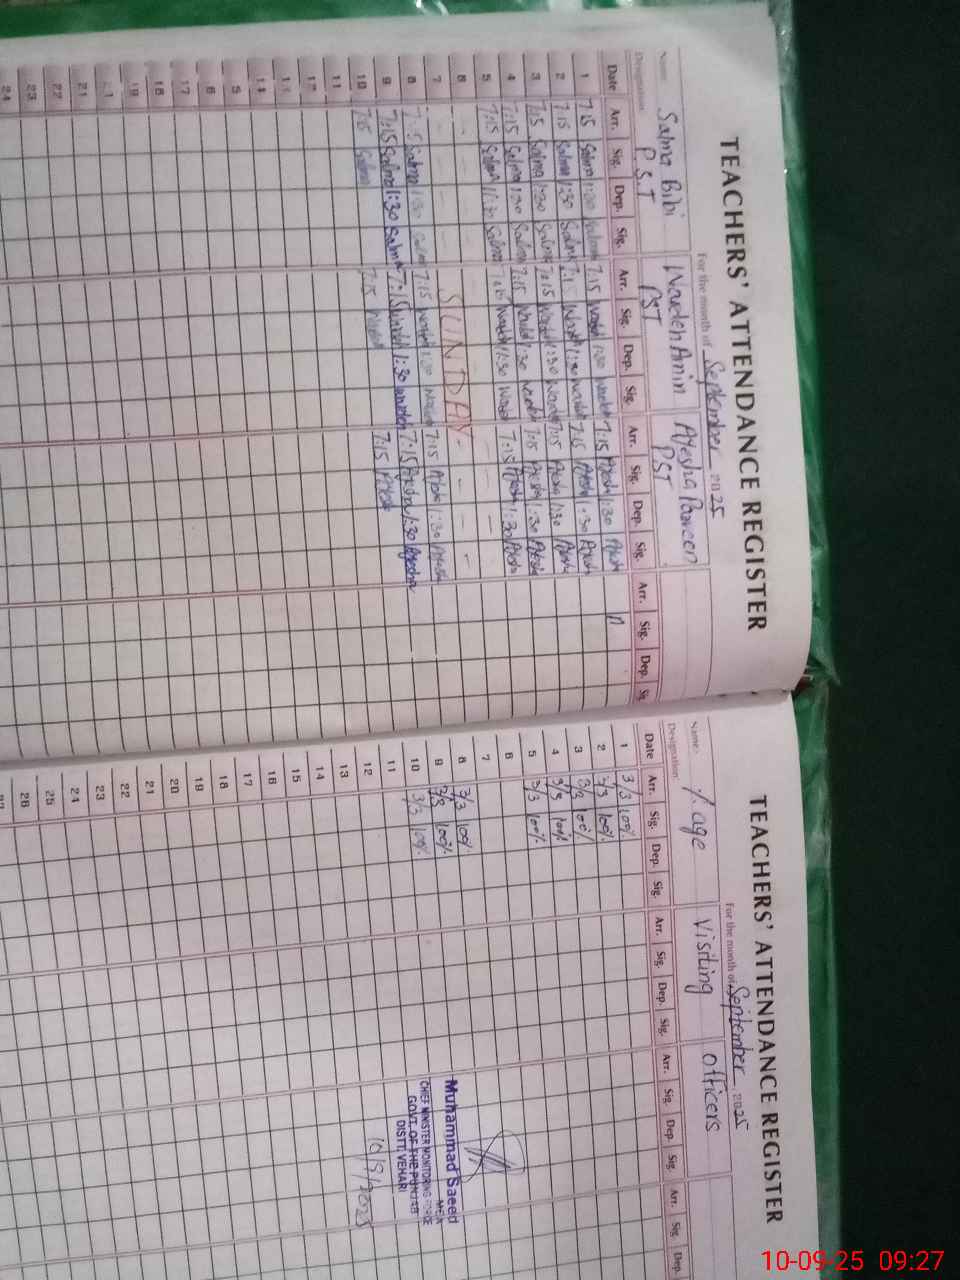 TEACHERS' ATTENDANCE REGISTER
For the month of September 2025
Name Salma Bibi Wardeh Amin Ayesha Parveen
Designation P.S.T PST PST
Date Arr. Sig. Dep. Sig. Arr. Sig. Dep. Sig. Arr. Sig. Dep. Sig. Arr. Sig. Dep.
1 7:15 Salma 1:30 Salma 7:15 Wardeh 1:30 Wardeh 7:15 Ayesha 1:30 Ayesha
2 7:15 Salma 1:30 Salma Wardeh 1:30 Wardeh 7:15 Ayesha 1:30 Ayesha
3 7:15 Salma 1:30 Salma 7:15 Wardeh 1:30 Wardeh 7:15 Ayesha 1:30 Ayesha
4 7:15 Salma 1:30 Salma 7:15 Wardeh 1:30 Wardeh 7:15 Ayesha 1:30 Ayesha
5 7:15 Salma 1:30 Salma 7:15 Wardeh 1:30 Wardeh 7:15 Ayesha 1:30 Ayesha
6
7 SUNDAY
8 Salma 1:30 Salma 7:15 Wardeh 1:30 Wardeh 7:15 Ayesha 1:30 Ayesha
9 7:15 Salma 1:30 Salma 7:15 Wardeh 1:30 Wardeh 7:15 Ayesha 1:30 Ayesha
10 7:15 Salma 7:15 Wardeh 7:15 Ayesha
11
12
17
21
22
23
24
TEACHERS' ATTENDANCE REGISTER
For the month of September 2025
Name: %age Visiting Officers
Designation:
Date Arr. Sig. Dep. Sig. Arr. Sig. Dep. Sig. Arr. Sig. Dep. Sig. Arr. Sig. Dep.
1 3/3 100%
2 3/3 100%
3 3/3 100%
4 3/3 100%
5 3/3 100%
6
7
8 3/3 100%
9 3/3 100%
10 3/3 100%
11
12
13
14
15
16
17
18
19
20
21
22
23
24
25
26
Muhammad Saeed
MEA
CHIEF MINISTER MONITORING FORCE
GOVT. OF THE PUNJAB
DISTT. VEHARI
10/9/2025
10-09-25 09:27